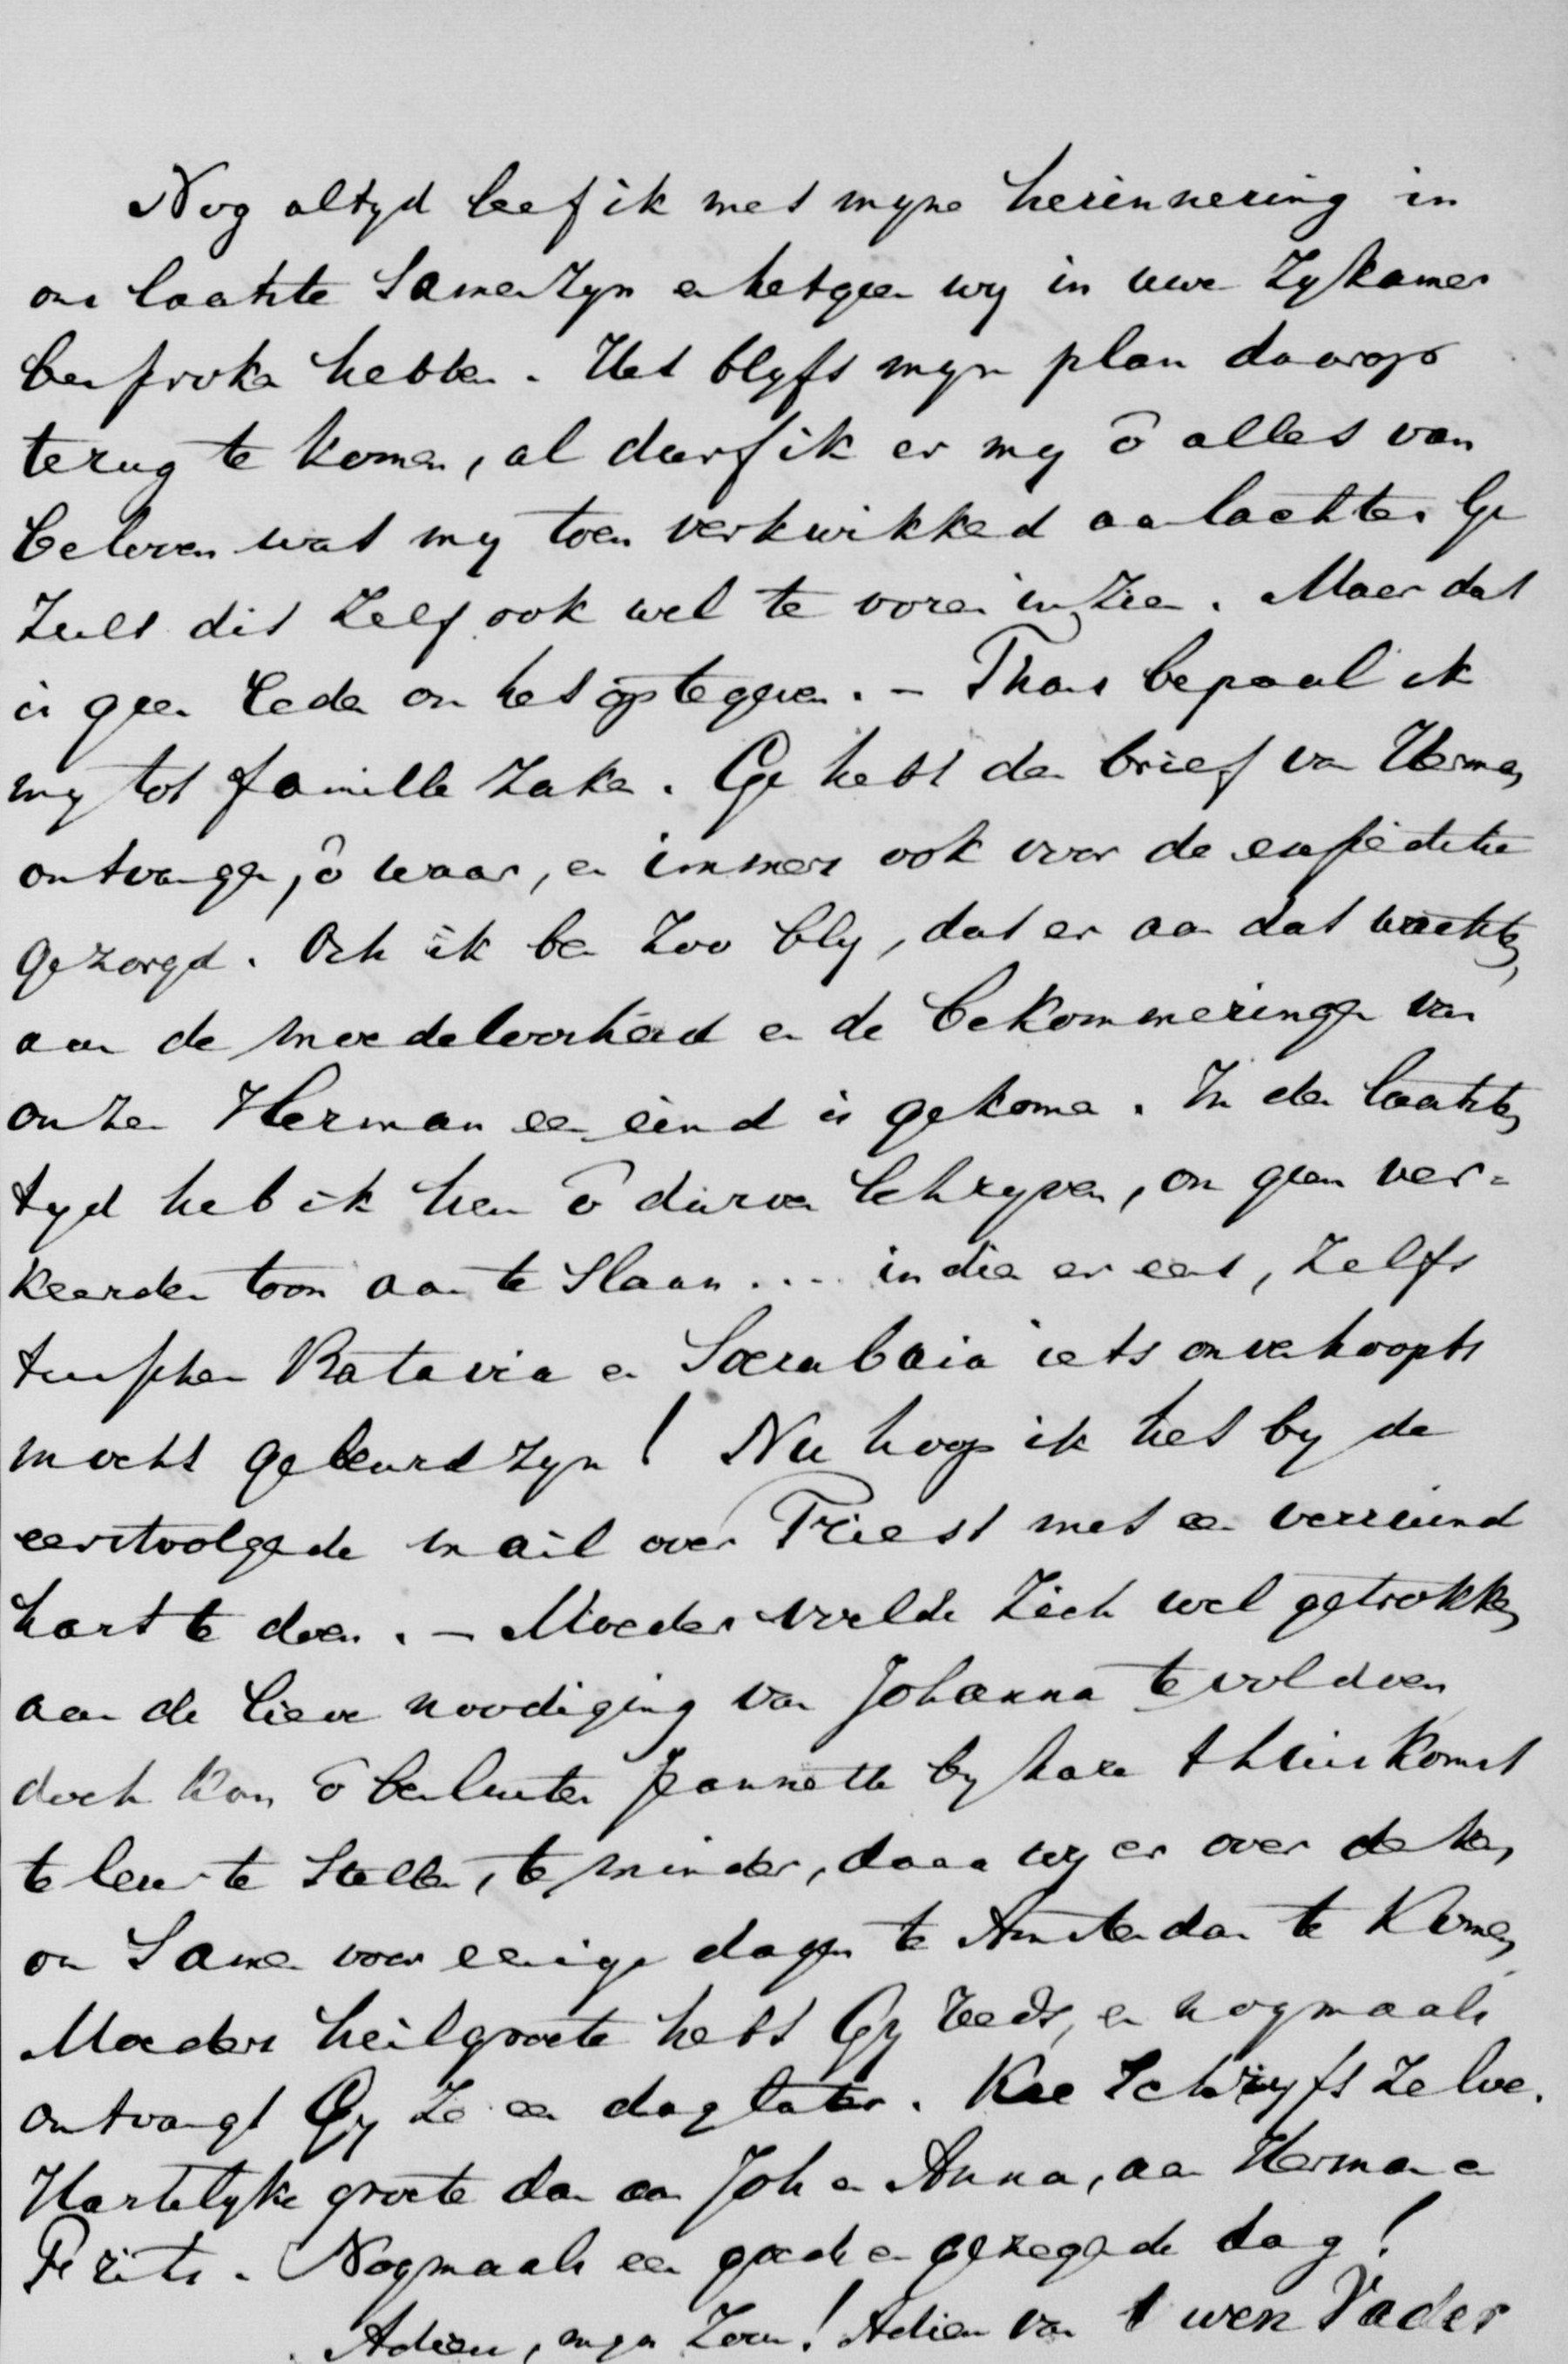 Nog altyd leef ik met myne herinnering in
ons laatste Samenzyn en hetgeen wy in uwe Zykamer
besproken hebben. Het blyft myn plan daarop
terug te komen, al durf ik er my ō alles van
beloven wat my toen verkwikkend aanlachte. Ge
Zult dit Zelf ook wel te voren inzien. Maar dat
is geen reden om het op te geven. – Thans bepaal ik
my tot familie Zaken. Ge hebt den brief van Herman
ontvangen, ō waar, en immers ook voor de expeditie
gezorgd. Och ik ben Zoo bly, dat er aan dat wachten,
aan de moedeloosheid en de bekommeringen van
onzen Herman een eind is gekomen. In den laatsten
tyd heb ik hem ō durven Schryven, om geen ver=
keerden toon aan te Slaan.... indien er eens, Zelfs
tusschen Batavia en Soerabaia iets onverhoopts
mocht gebeurd zyn! Nu hoop ik het by de
eerstvolgende mail over Triest met een verruimd
hart te doen. – Moeder voelde Zich wel getrokken
aan de lieve noodiging van Johanna te voldoen
doch kon ō besluiten Jeannette by hare thuiskomst
te leur te Stellen, te minder, daar wy er over denken
om Samen voor eenige dagen te Amsterdam te Komen,
Moeders heilgroete hebt Gy reeds, en nogmaals
ontvangt Gy Ze een dag later. Kee Schryft Zelve.
Hartelyke groete dan aan Joh en Anna, aan Herman en
Frits. Nogmaals een goede en gezegende dag!
Adieu, myn Zoon! Adieu van Uwen Vader